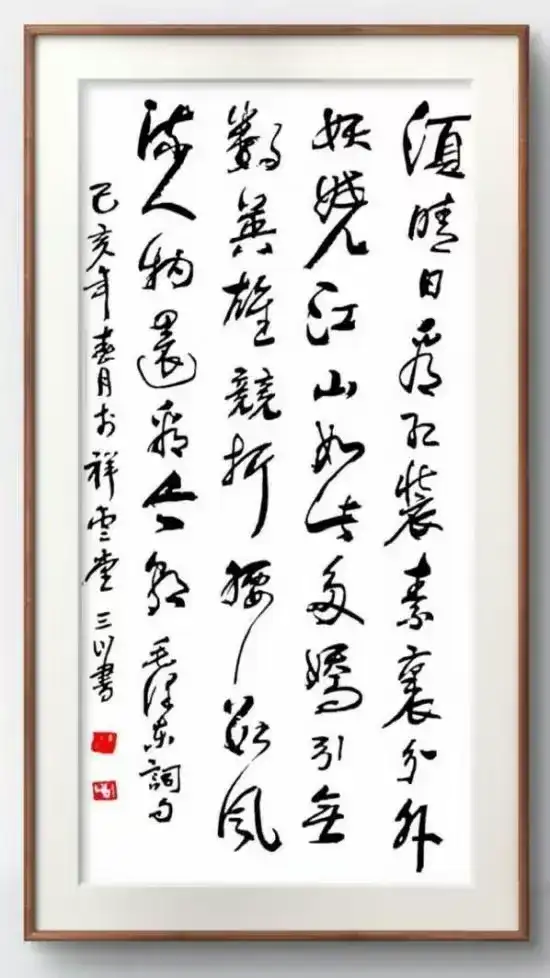 須晴日看红裝素裹分外
妖嬈江山如此多嬌引無
數英雄競折腰數風
流人物還看今朝毛澤東詞句
己亥年春月於祥雲堂三川書